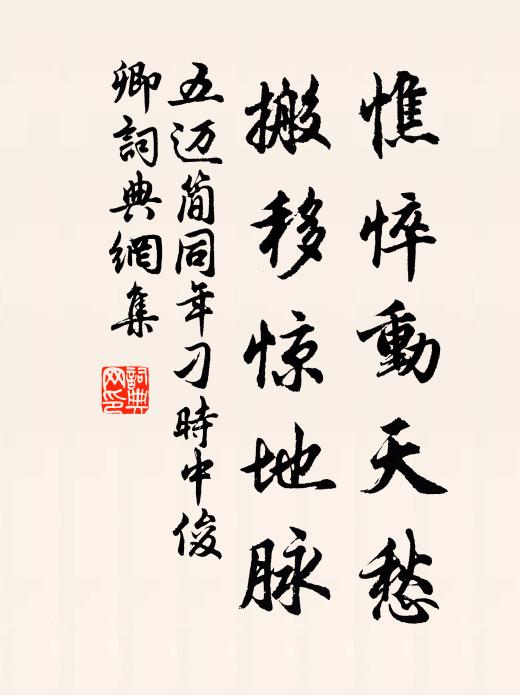 憔悴動天愁
搬移惊地脉
五迈简同年刁時中俊
卿詞典網集
詞典網印